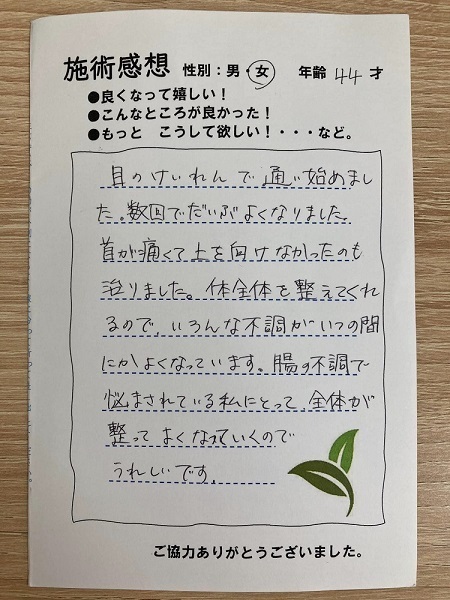 施術感想 性別：男・女 年齢 44 才
●良くなって嬉しい！
●こんなところが良かった！
●もっと こうして欲しい！・・・など。
目のけいれんで通い始めまし
た。数回でだいぶよくなりました。
首が痛くて上を向けなかったのも
治りました。体全体を整えてくれ
るので、いろんな不調がいつの間
にかよくなっています。腸の不調で
悩まされている私にとって、全体が
整って よくなっていくので
うれしいです。
ご協力ありがとうございました。